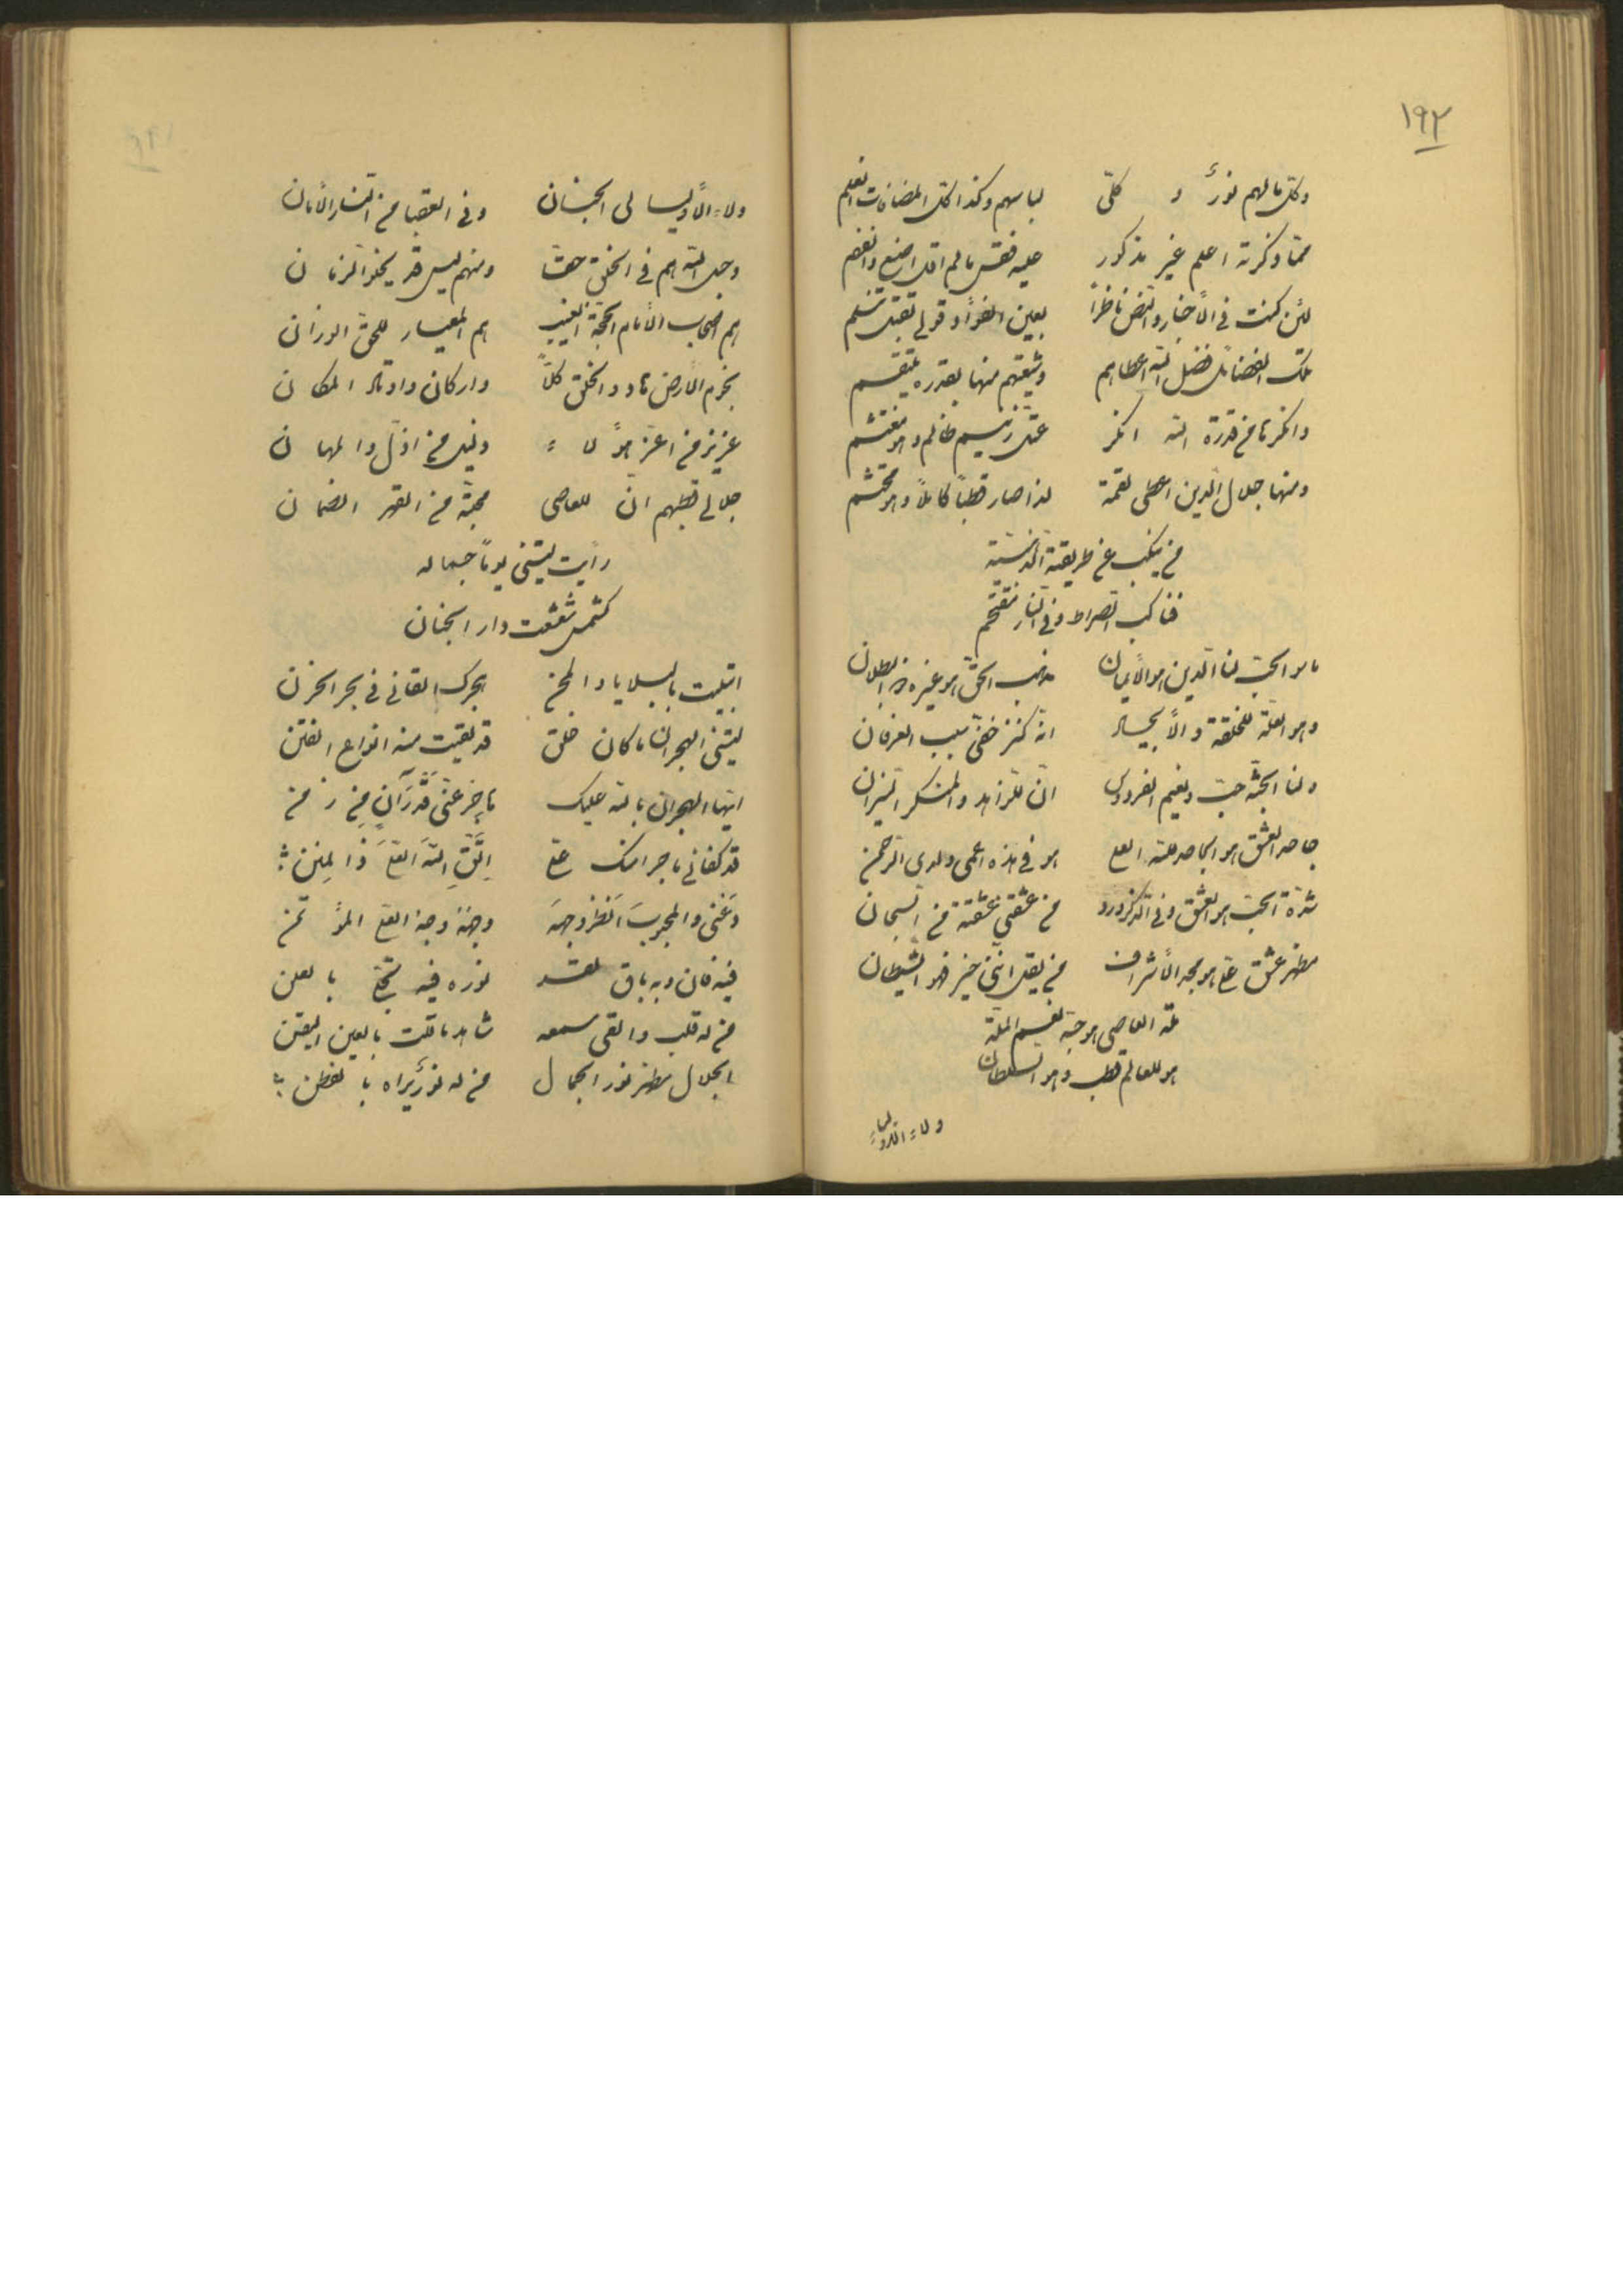 ١٩٢
وكل مالهم نور و كلّی لباسهم وكذا كل المضافات
ممّا ذكرته اعلم غير مذكور عليه فقس مالم اقل
لئن كنت في الأخبار والنص ناظراً بعين الفؤاد قولي تقبل
تلك الفضائل فضل الله اعطاهم وشيعتهم منها بقدره
وانكر من قدرة الله انكر عتل زنيم ظالم وهو
ومنها جلال الدين اعطى لقمة لذا صار قطباً كاملاً وهو محتشم
من ينكب عن طريقة
فناكب الصراط وفي النار مقتحم
ما سوا الحب لنا الدين هو الأيمان مذهب الحق هو غيره البطلان
وهو العلة للخلقة والأيجاد انه كنز خفي سبب العرفان
ولنا الجنة حب ونعيم الفردوس ان للزاهد والمنكر النيران
جاحد العشق هو الجاحد لله العلي هو في هذه اعمى ولدى الرحمن
شدة الحب هو العشق وفي الذكر ورد من عشقني عشقته من السبحان
مظهر عشق علي هو مجد الأشراف من يقل انني خير فهو الشيطان
لله العاصي هو حبه نعيم الملة
هو للعالم قطب وهو السلطان
ولاء الاولياء
ولاء الأوليا لى الجنان وفى العقبا من النار الأمان
وجه الله هم في الخلق حقا ومنهم ليس قد يخلو الزمان
هم اصحاب الأمام الحجة الغيب هم المعيار للحق الوزان
بحزم الأرض والخلق كلّاً واركان واوتاد المكان
عزيز من اعز هؤلاء ذليل من اذل والمهان
جلالي قطبهم ان للعاصي محبة من القهر الضمان
رأيت ليتني يوماً جماله
كشمس شعشعت دار الجنان
ابتليت بالبلايا والمحن هجرك القاني في بحر الحزن
ليتني الهجران ما كان خلق قد لقيت منه انواع الفتن
ايها الهجران بالله عليك
قد كفاني ما جرا منك علي اتق الله العلي ذا المنن
دعني والمحبوب انظر وجهه وجهه وجه العلي المؤتمن
فيه فان وبه باق لقد نوره فيه تجلى بالعلن
من له قلب والقى سمعه شاهد ما قلت بالعين اليقن
الجلال مظهر نور الجمال من له نور يراه بالفطن